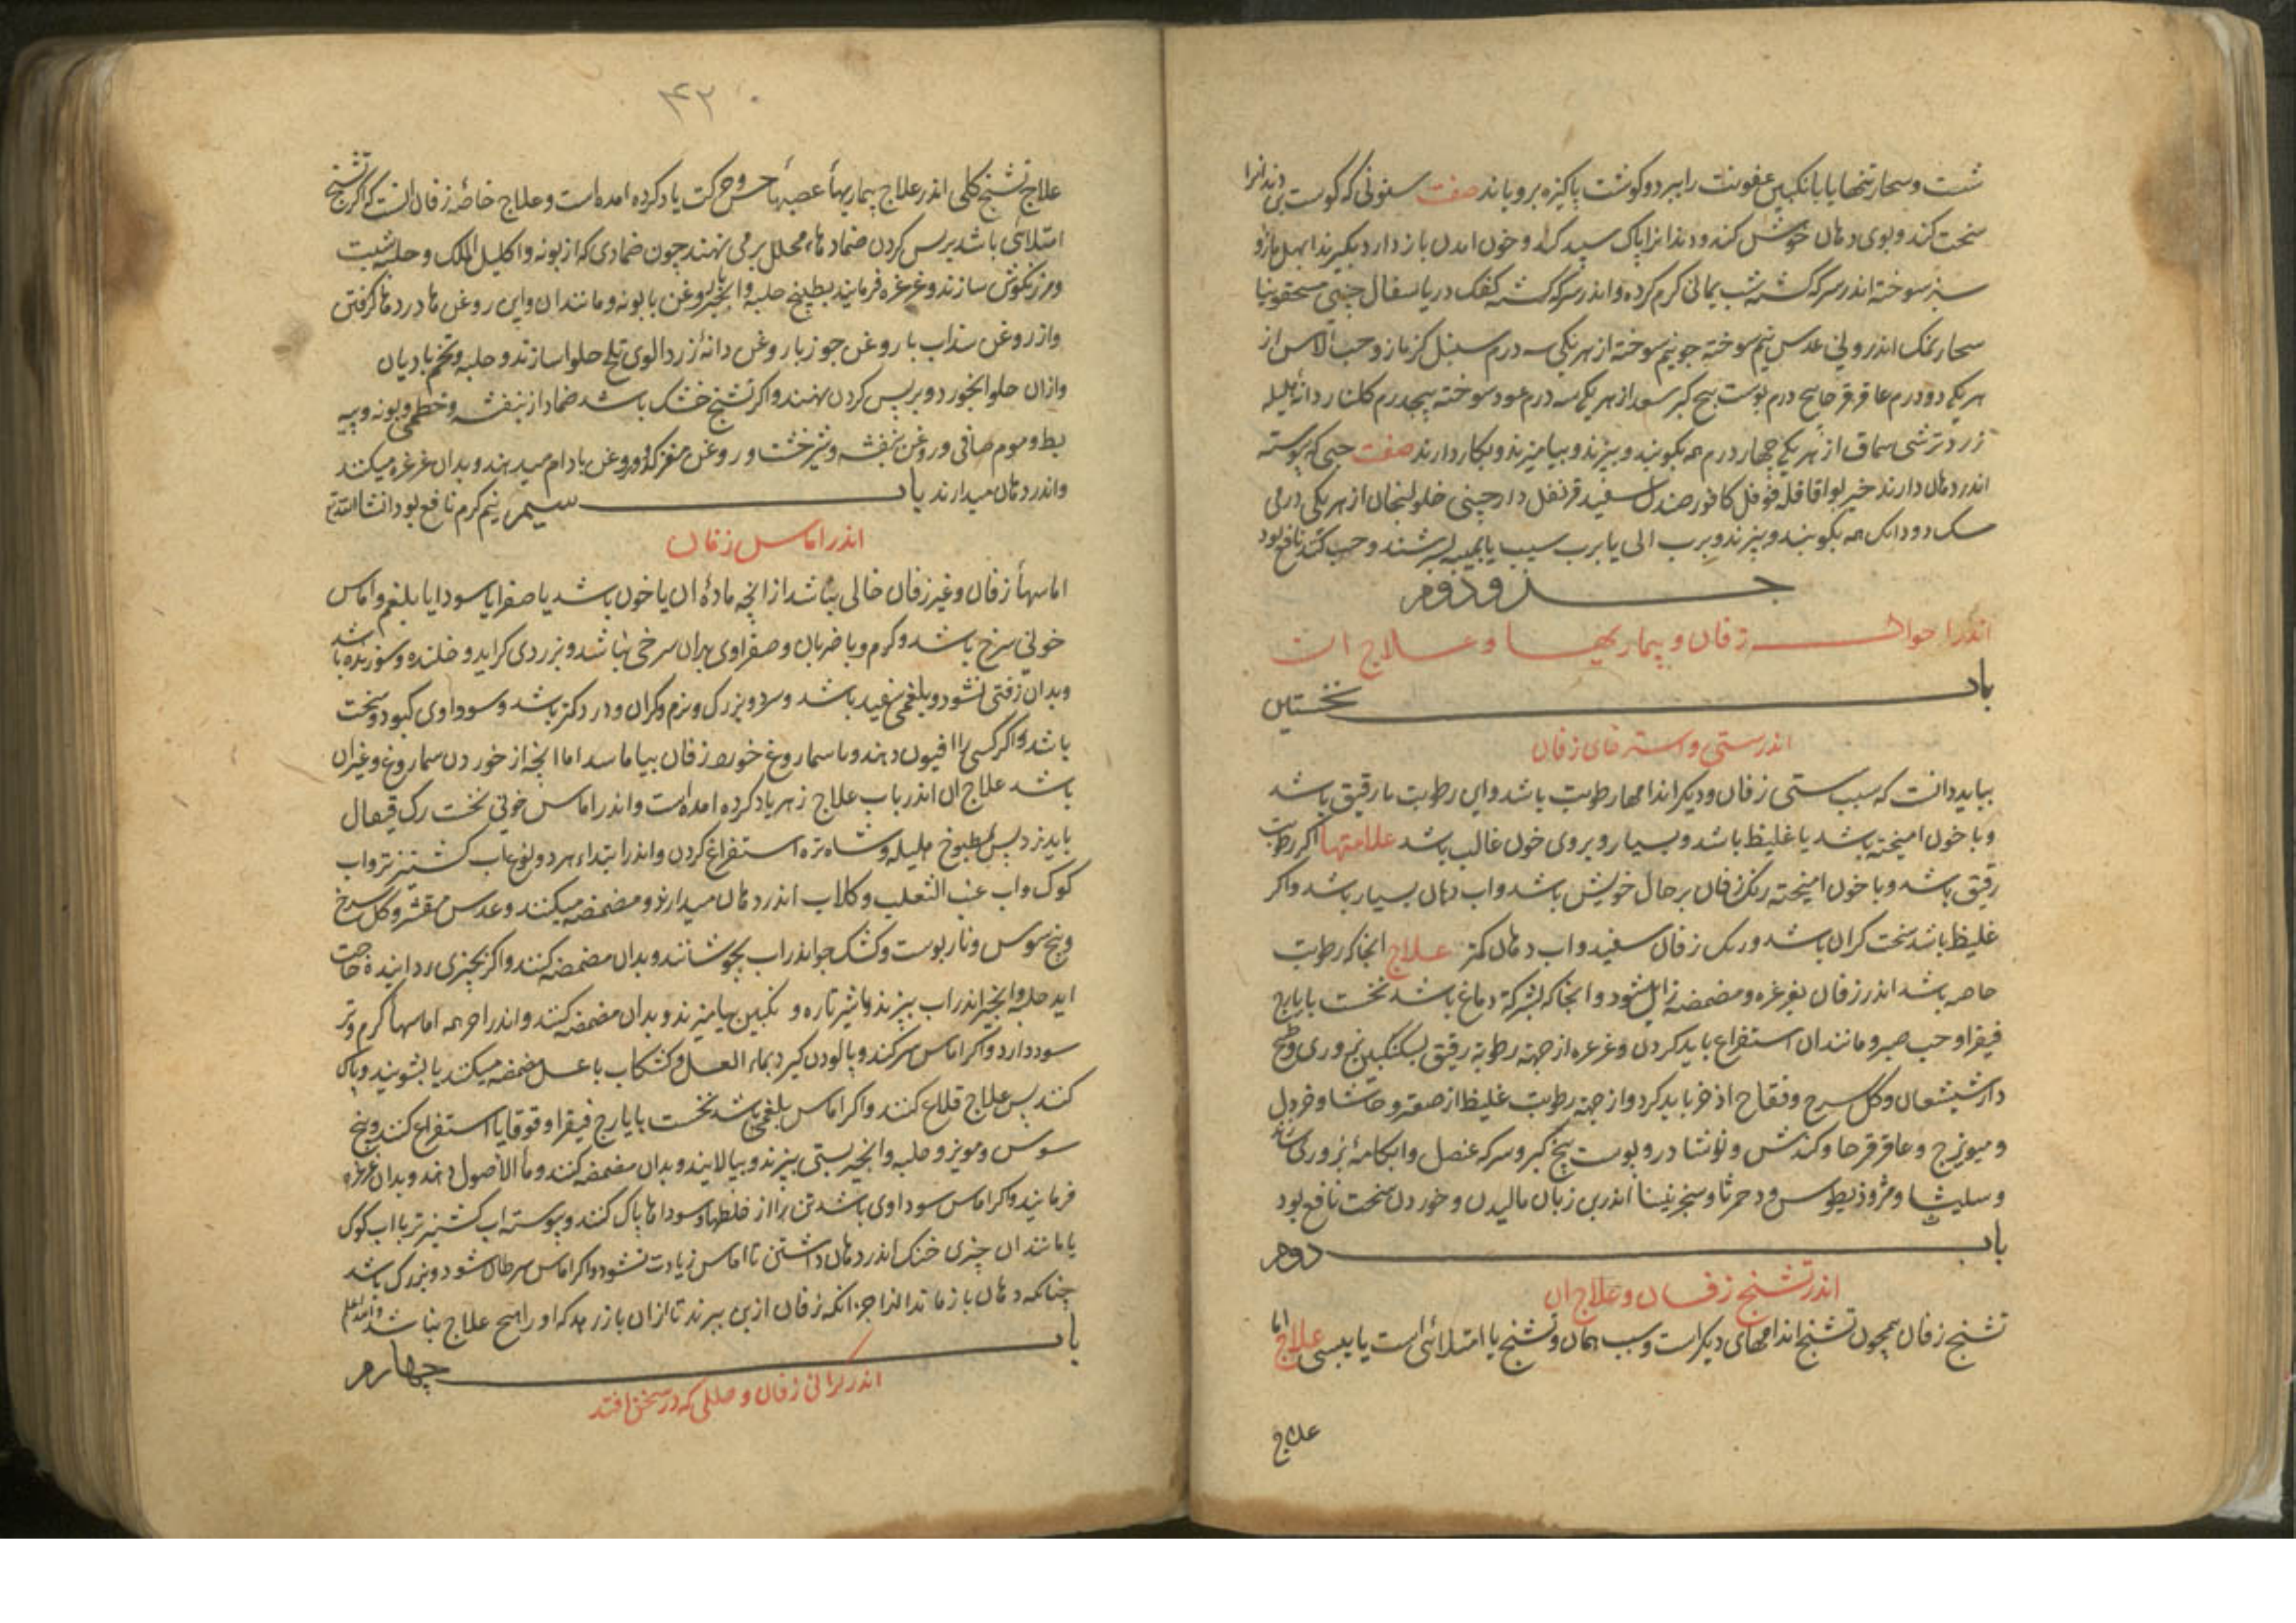 شست و سحار تنها یا با انکبین عفونت را ببرد و کوشت پاکیزه برویاند صفت سنونی که کوشت بن دندانرا
سخت کند و بوی دهان خوش کند و دندانرا پاک سپید کند و خون امدن باز دارد بکیرند ابهل مازو
سبز سوخته اندر سرکه کشته شب یمانی کرم کرده و اندر سرکه کشته کفک دریا سفال چینی
نمک اندرونی عدس نیم سوخته جو نیم سوخته از هر یکی سه درم سنبل کزمازو حب الاس از
هر یکی دو درم عاقرقرحا پنج درم پوست بیخ کبر سعد از هر یکی سه درم عود سوخته پنجدرم کلنار دانه هلیله
زرد ترشی سماق از هر یکی چهار درم همه بکوبند و ببیزند و بیامیزند و بکار دارند صفت حبی که پیوسته
اندر دهان دارند خیربوا قاقله فوفل کافور صندل سفید قرنفل دارچینی خولنجان از هر یکی درمی
سک دو دانک همه بکوبند و ببیزند و برب الی یا برب سیب یا بمیبه بسرشند و حب کنند نافع بود
جزو دوم
اندر احوال زفان و بیماریها و علاج ان
باب نخستین
اندر سستی و استرخای زفان
بباید دانست که سبب سستی زفان و دیکر اندامها رطوبت باشد و این رطوبت یا رقیق باشد
و با خون امیخته باشد یا غلیظ باشد و بسیار و بروی خون غالب باشد علامتها اکر رطوبت
رقیق باشد و با خون امیخته رنک زفان بر حال خویش باشد و اب دهان بسیار باشد و اکر
غلیظ باشد سخت کران باشد و رنک زفان سفید و اب دهان کمتر علاج انجا که رطوبت
خاصه باشد اندر زفان بغرغره و مضمضه زایل شود و انجا که بشرکة دماغ باشد نخست بایارج
فیقرا و حب صبر و مانند ان استفراغ باید کردن و غرغره از جهة رطوبة رقیق بسکنکبین بزوری و طبخ
دارشیشعان و کل سرخ و فقاح اذخر باید کرد و از جهة رطوبت غلیظ از صعتر و حاشا و خردل
و میویزج و عاقرقرحا و کندش و نوشادر و پوست بیخ کبر و سرکه عنصل و ابکامه بزوری
و سلیثا و مثرودیطوس و دحمرثا و سجزنینا اندرین زبان مالیدن و خوردن سخت نافع بود
باب دوم
اندر تشنج زفان و علاج ان
تشنج زفان همچون تشنج اندامهای دیکر است و سبب همان و تشنج یا امتلائی است یا یبسی علاج اما
علاج
۴۲
علاج تشنج کلی اندر علاج بیماریهاء عصبها حس و حرکت یاد کرده امده است و علاج خاصه زفان انست که اکر تشنج
امتلائی باشد بر پس کردن ضمادهاء محلل برمی نهند چون ضمادی که از بابونه و اکلیل الملک و حلبه شبت
و مرزنکوش سازند و غرغره فرمایند بطبیخ حلبه و انجیر و بروغن بابونه و مانند ان و این روغن ها در دهان کرفتن
و از روغن سداب با روغن جوز با روغن دانه زردالوی تلخ حلوا سازند و حلبه و تخم بادیان
و ازان حلوا بخورد و بر پس کردن نهند و اکر تشنج خشک باشد ضماد از بنفشه و خطمی و بابونه و پیه
بط و موم صافی و روغن بنفشه و شیرخشت و روغن مغز کدو و روغن بادام میدهند و بدان غرغره میکنند
و اندر دهان میدارند باب سیم نیم کرم نافع بود انشا الله تع
اندر اماس زفان
اماسهاء زفان و غیر زفان خالی نباشد از انچه مادهٔ ان یا خون باشد یا صفرا یا سودا یا بلغم و اماس
خونی سرخ باشد و کرم و با ضربان و صفراوی بدان سرخی نباشد و بزردی کراید و خلنده و سوزنده باشد
و بدان زفتی نشود و بلغمی سفید باشد و سرد و بزرک و نرم و کران و درد کمتر باشد و سوداوی کبود و سخت
باشد و اکر کسی را افیون دهند و یا سماروغ خورد زفان بیاماسد اما انچه از خوردن سماروغ و غیر ان
باشد علاج ان اندر باب علاج زهر یاد کرده امده است و اندر اماس خونی نخست رک قیفال
باید زد پس بمطبوخ هلیله و شاه تره استفراغ کردن و اندر ابتداء هر دو نوع اب کشنیز تر و اب
کوک و اب عنب الثعلب و کلاب اندر دهان میدارند و مضمضه میکنند و عدس مقشر و کل سرخ
و بیخ سوس و نار پوست و کشک جو اندر اب بجوشانند و بدان مضمضه کنند و اکر بچیزی رداننده حاجت
اید حلبه و انجیر اندر اب بپزند و با شیر تازه و انکبین بیامیزند و بدان مضمضه کنند و اندر اخر همه اماسهاء کرم و تر
سود دارد و اکر اماس سر کند و پالودن کیرد بماء العسل و کشکاب با عسل مضمضه میکنند یا بشویند و پاک
کنند پس علاج قلاع کنند و اکر اماس بلغمی باشد نخست بایارج فیقرا و قوقایا استفراغ کنند و بیخ
سوس و مویز و حلبه و انجیر بستی بپزند و بپالایند و بدان مضمضه کنند و ماء الاصول دهند و بدان غرغره
فرمایند و اکر اماس سوداوی باشد تن را از خلطهاء سودا پاک کنند و پیوسته اب کشنیز تر با اب کوک
یا مانند ان چیزی خنک اندر دهان داشتن تا اماس زیادت نشود و اکر اماس سرطان شود و بزرک باشد
چنانکه دهان باز ماند جز انکه زفان از بن ببرند تا ازان باز رهد که او را هیچ علاج نباشد والله اعلم
باب چهارم
اندر کرانی زفان و خللی که در سخن افتد